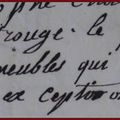 rouge. le
meubles qui
exception